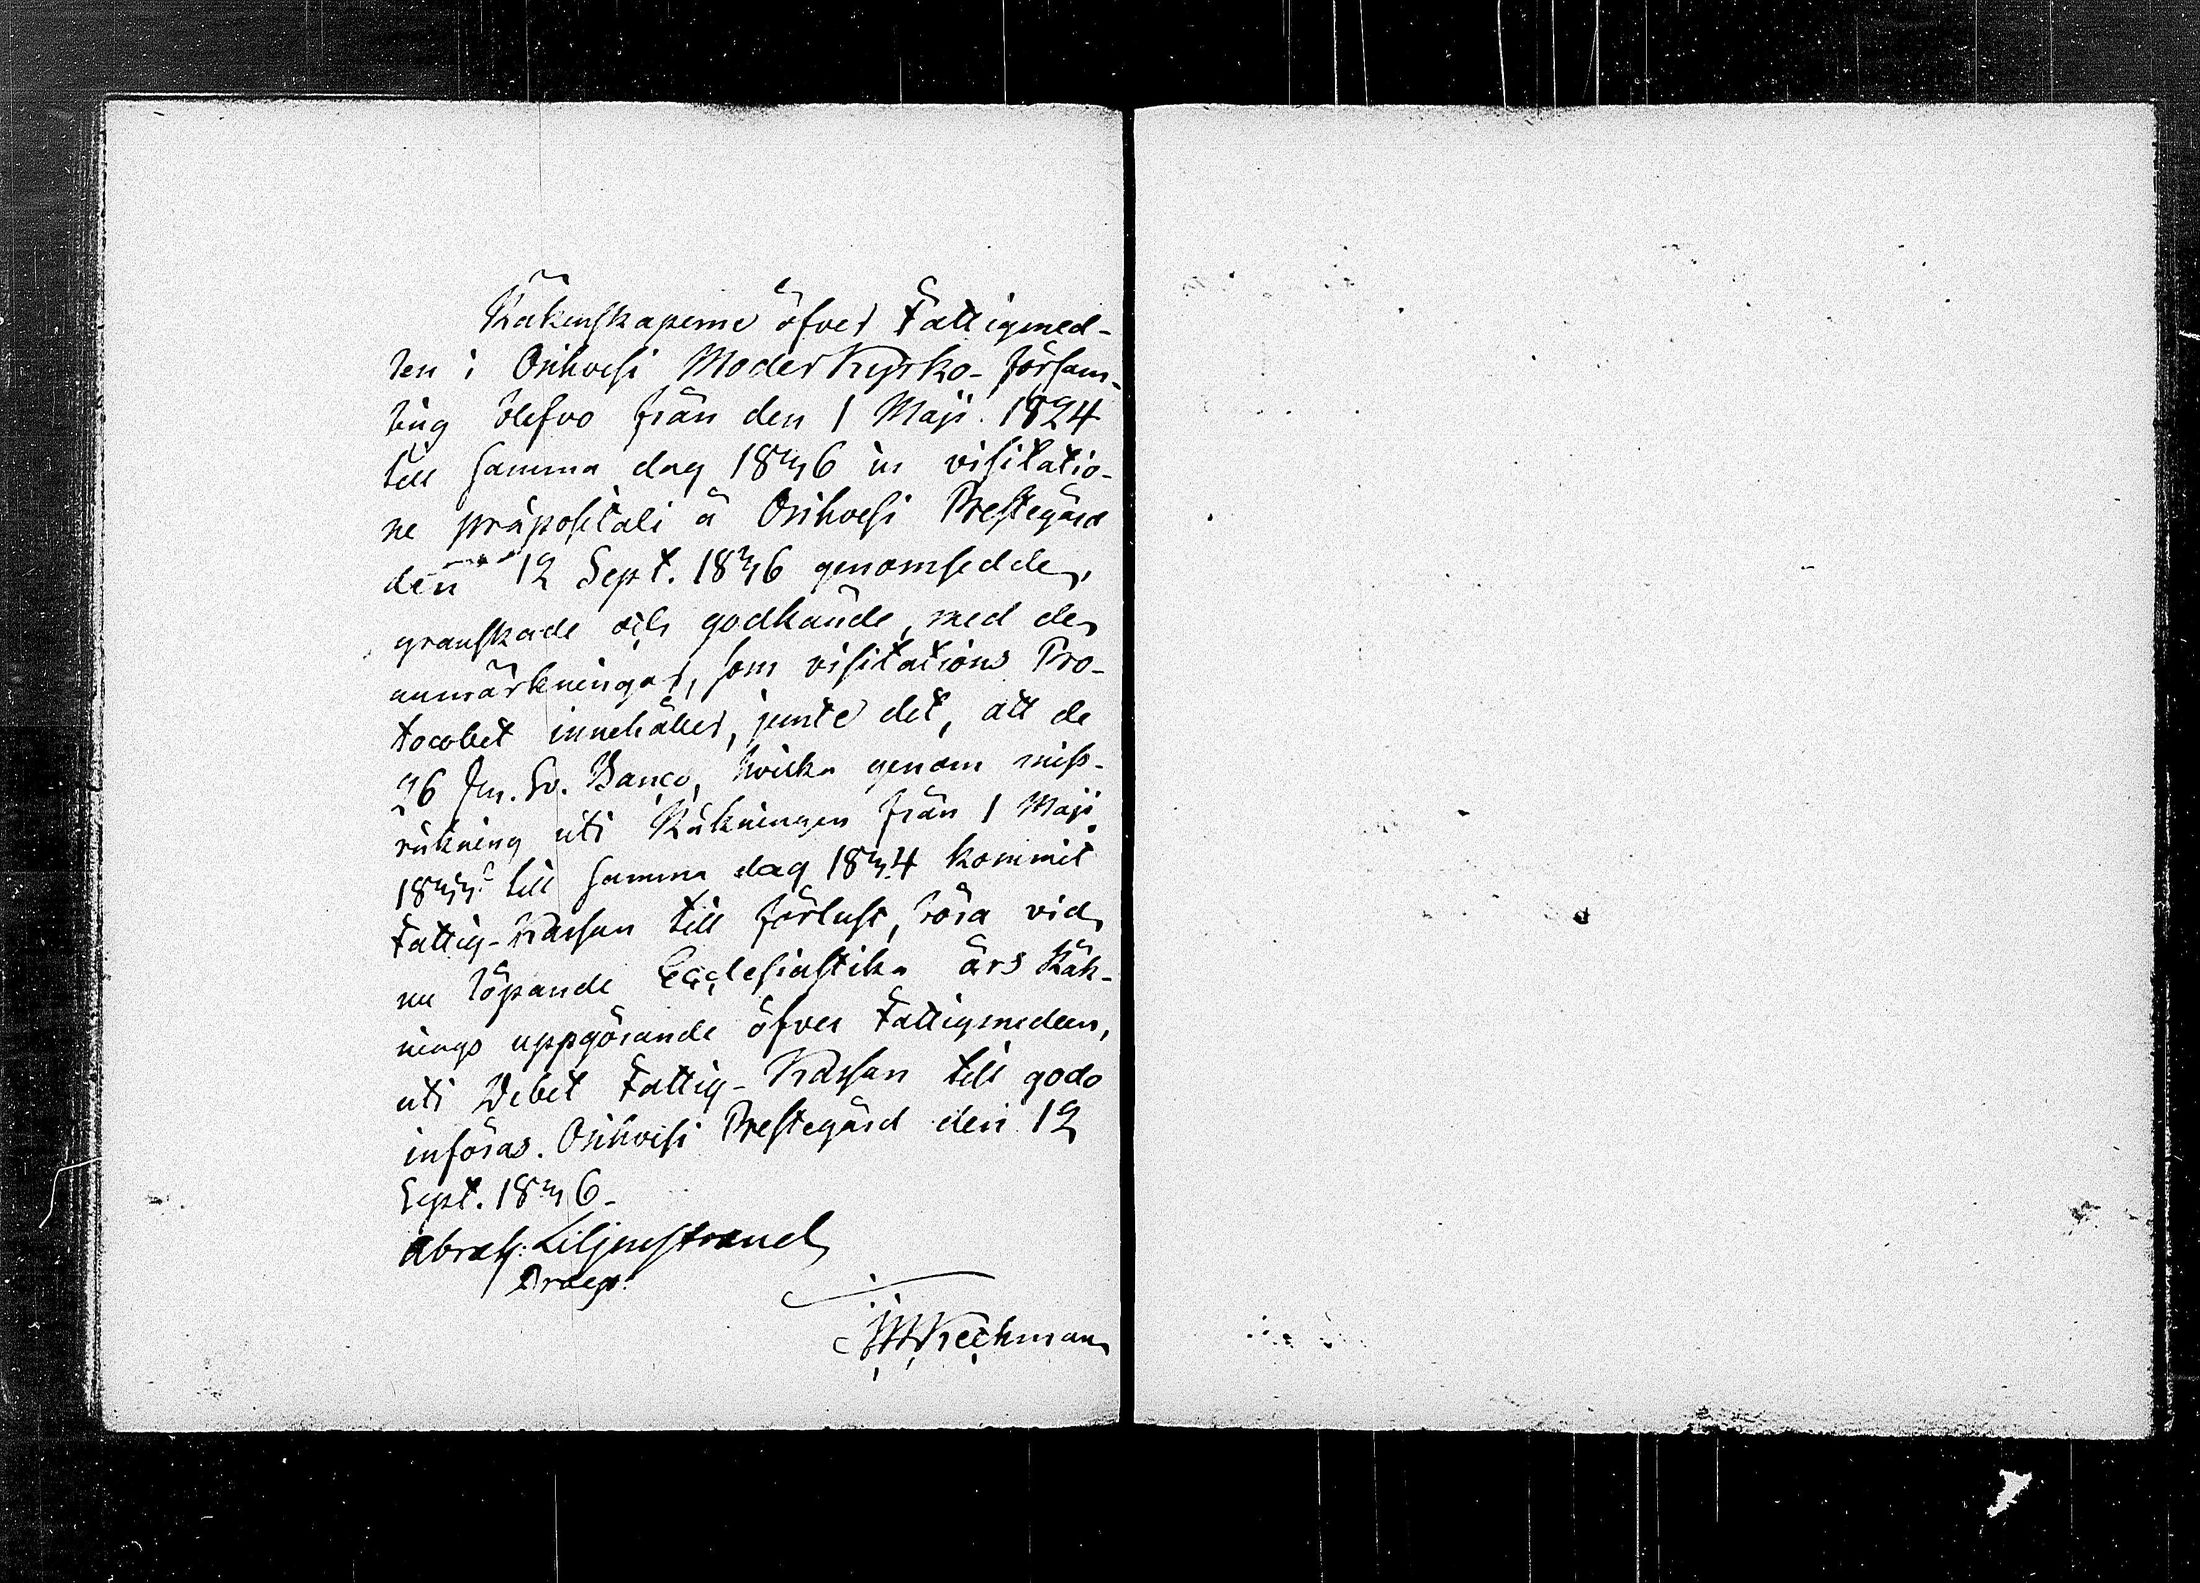 Räkenskaperne öfver Fattigmed-
len i Orihvesi Moder Kyrko-försam-
ling blefvo från den 1 Maji 1824
till samma dag 1836 in visitatio-
ne præpositali å Orihvesi Prestegård
den 12 Sept. 1836 genomsedde,
granskade och godkände, med de
anmärkningar, som visitations Pro-
tocollet innehåller, jemte det, att de
26 Sv. Banco, hvilka genom miss-
räkning uti Räkningen från 1 Maji
1833 till samma dag 1834 kommit
Fattig-Kassan till förlust, böra vid
nu löpande Ecclesiastika års Räk-
nings uppgörande öfver Fattigmedlen,
uti Debet Fattig-Kassan till godo
införas. Orihvesi Prestegård den 12
Sept. 1836.
Abrah: Liljenstrand
Præp.
Keckman